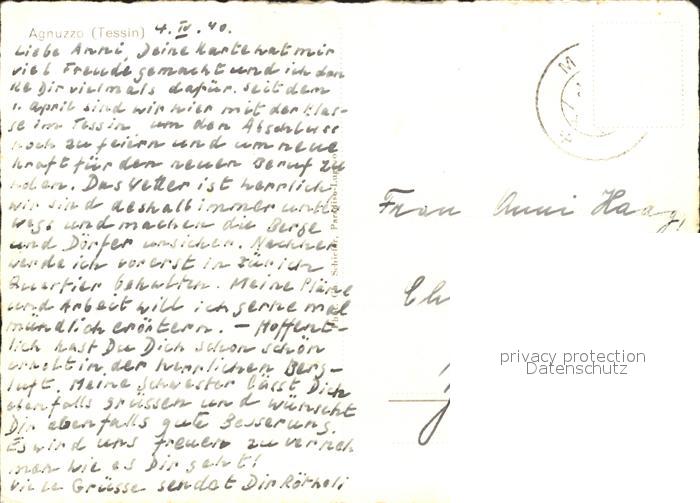 Agnuzzo (Tessin) 4. IV. 40.
Liebe Anni, Deine Karte hat mir
viel Freude gemacht und ich dan
ke Dir vielmals dafür. Seit dem
1. April sind wir hier mit der Klas-
se im Tessin um den Abschluss
noch zu feiern und um neue
Kraft für den neuen Beruf zu
holen. Das Wetter ist herrlich
wir sind deshalb immer unter
wegs und machen die Berge
und Dörfer unsicher. Nachher
werde ich vorerst in Zürich
Quartier behalten. Meine Pläne
und Arbeit will ich gerne mal
mündlich erörtern. – Hoffent-
lich hast Du Dich schon schön
erholt in der herrlichen Berg-
luft. Meine Schwester lässt Dich
ebenfalls grüssen und wünscht
Dir ebenfalls gute Besserung.
Es wird uns freuen zu verneh
men wie es Dir geht!
Viele Grüsse sendet Dir Rötheli
Frau Anni Haag,
Ch
privacy protection
Datenschutz